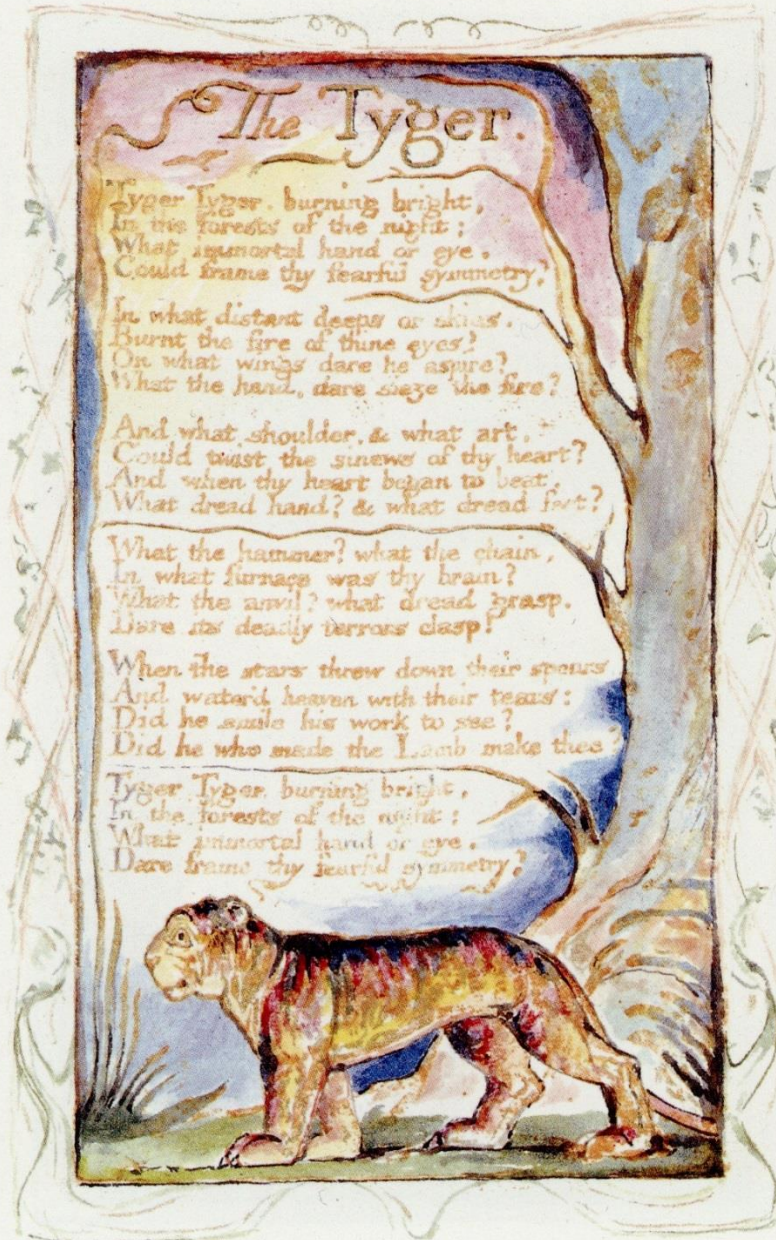 The Tyger.
Tyger Tyger. burning bright,
In the forests of the night;
What immortal hand or eye,
Could frame thy fearful symmetry?
In what distant deeps or skies.
Burnt the fire of thine eyes?
On what wings dare he aspire?
What the hand, dare sieze the fire?
And what shoulder, & what art,
Could twist the sinews of thy heart?
And when thy heart began to beat,
What dread hand? & what dread feet?
What the hammer? what the chain,
In what furnace was thy brain?
What the anvil? what dread grasp.
Dare its deadly terrors clasp!
When the stars threw down their spears
And water'd heaven with their tears:
Did he smile his work to see?
Did he who made the Lamb make thee?
Tyger Tyger burning bright,
In the forests of the night:
What immortal hand or eye,
Dare frame thy fearful symmetry?